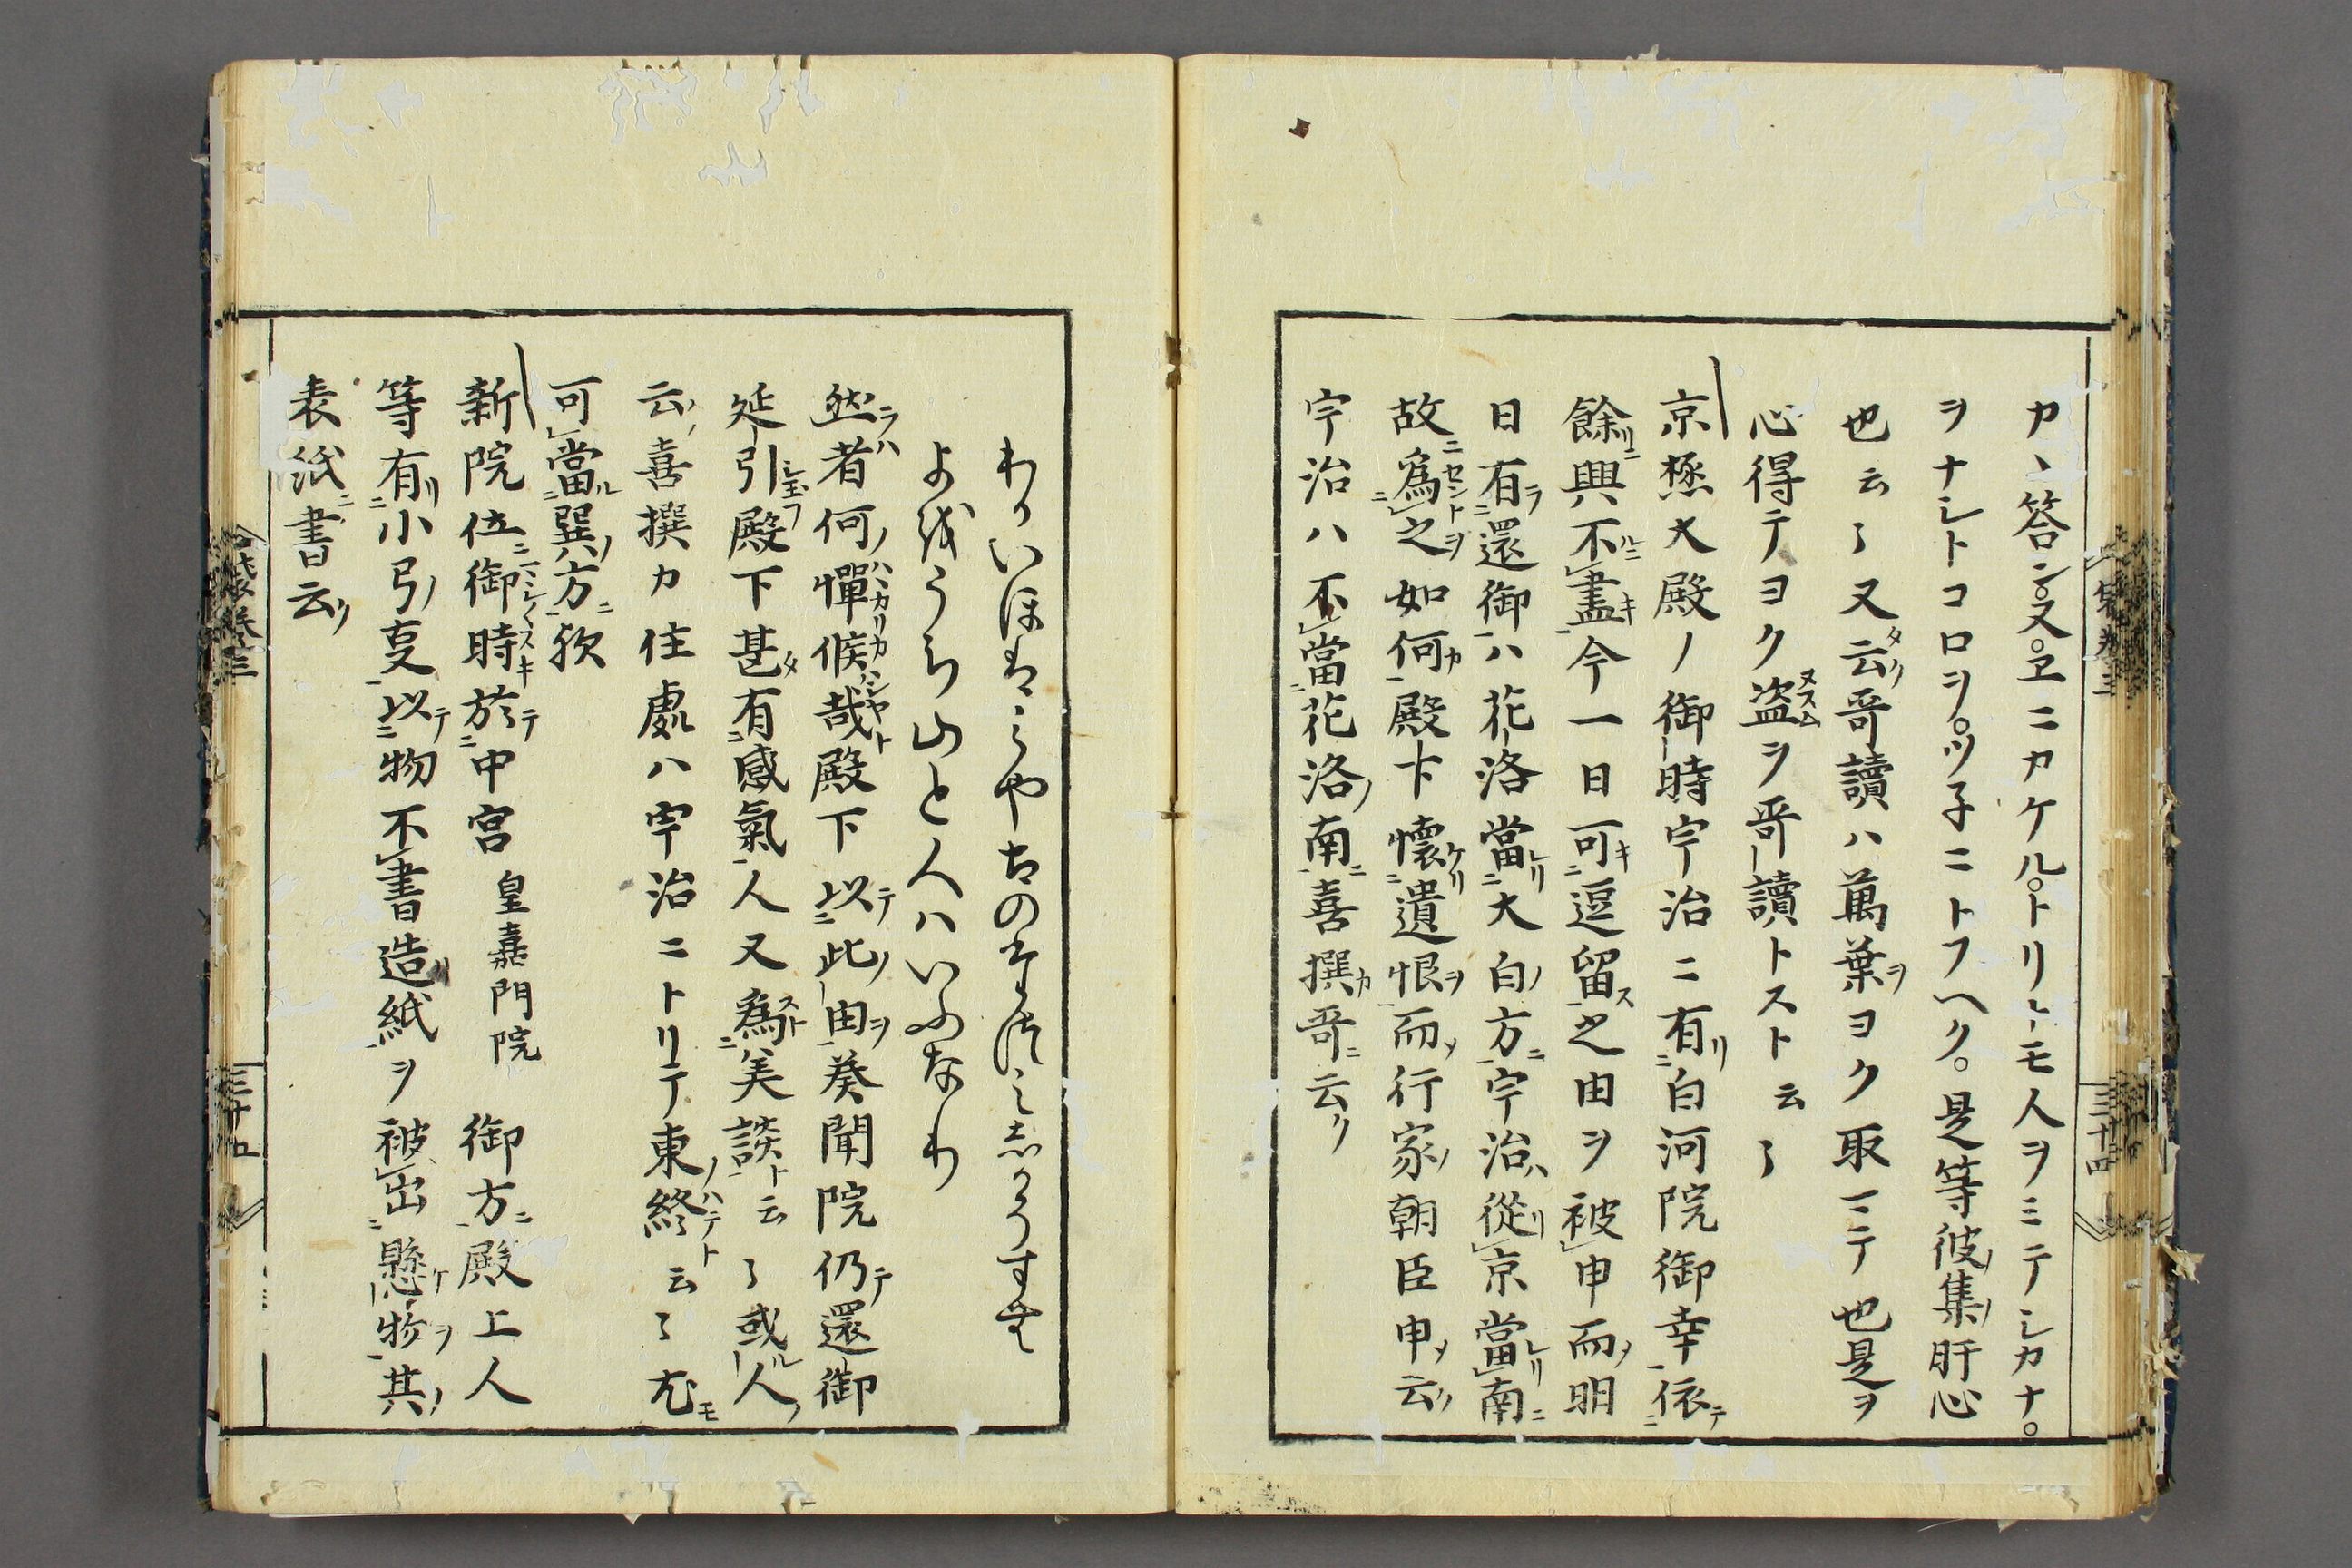 カヽ答ン。又。ヱニカケル。トリシモ人ヲミテシカナ。
ヲナシトコロヲ。ツ子ニトフヘク。是等彼集ノ肝心
也云々又云哥讀ハ萬葉ヲヨク取マテ也是ヲ
心得テヨク盗ヲ哥讀トスト云々
京極大殿ノ御時宇治ニ有白河院御幸依
餘興不盡今一日可逗留之由ヲ被申而明
日有還御ハ花洛當大白方宇治ハ從京當南
故為之如何殿下懐遺恨而行家朝臣申云
宇治ハ不當花洛南喜撰哥云
わかいほはみやこのたつみしかそすむ
よをうち山と人はいふなり
然者何憚候哉殿下以此由葵聞院仍還御
延引殿下甚有感氣人又為美談云々或人
云喜撰カ住處ハ宇治ニトリテ東終云々尤
可當巽方歟
新院位御時於中宮 皇嘉門院 御方殿上人
等有小弓㕝以物不書造紙ヲ被出懸物其
表紙書云
袋巻三
三十四